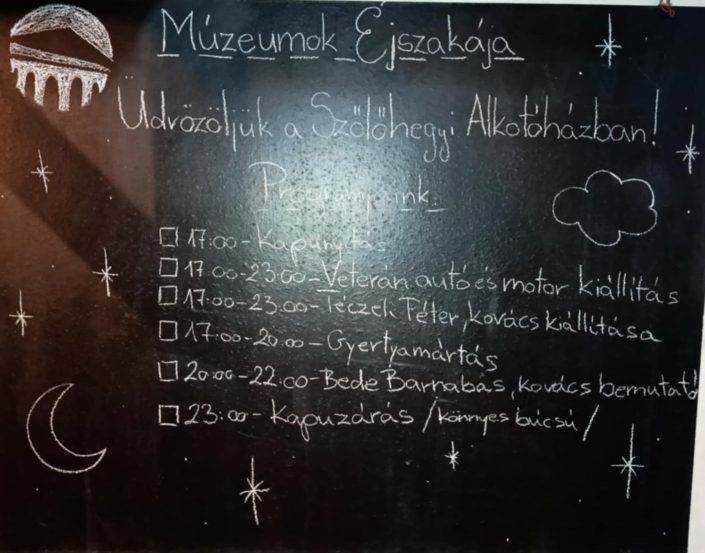 Múzeumok Éjszakája
Üdvözöljük a Szőlőhegyi Alkotóházban!
Programjaink:
□ 17:00 - Kapunyitás
□ 17:00-23:00 - Veterán autó és motor kiállítás
□ 17:00-23:00 - Téczeli Péter, kovács kiállítása
□ 17:00-20:00 - Gyertyamártás
□ 20:00-22:00 - Bede Barnabás, kovács bemutató
□ 23:00 - Kapuzárás /könnyes búcsú/